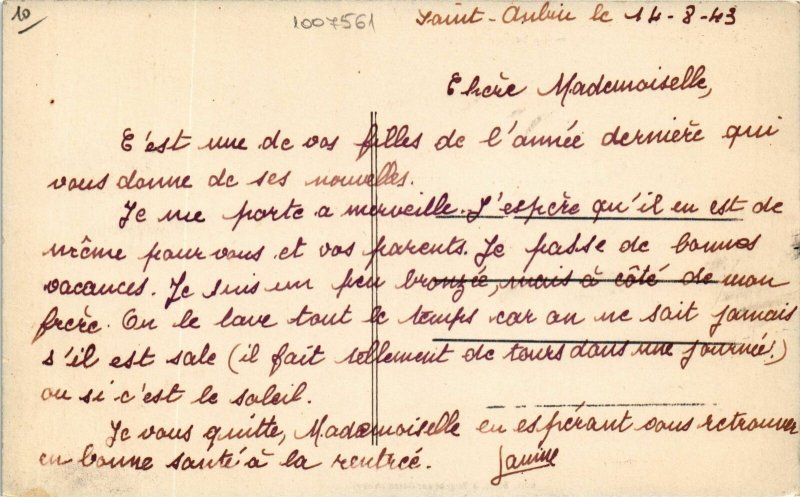 10
1007561
Saint-Aubin le 14-8-43
Chère Mademoiselle,
C'est une de vos filles de l'année dernière qui
vous donne de ses nouvelles.
Je me porte a merveille. J'espère qu'il en est de
même pour vous et vos parents. Je passe de bonnes
vacances. Je suis un peu bronzée, mais à côté de mon
frère. On le lave tout le temps car on ne sait jamais
s'il est sale (il fait tellement de tours dans une journée!)
ou si c'est le soleil.
Je vous quitte, Mademoiselle en espérant vous retrouver
en bonne santé à la rentrée. Janine